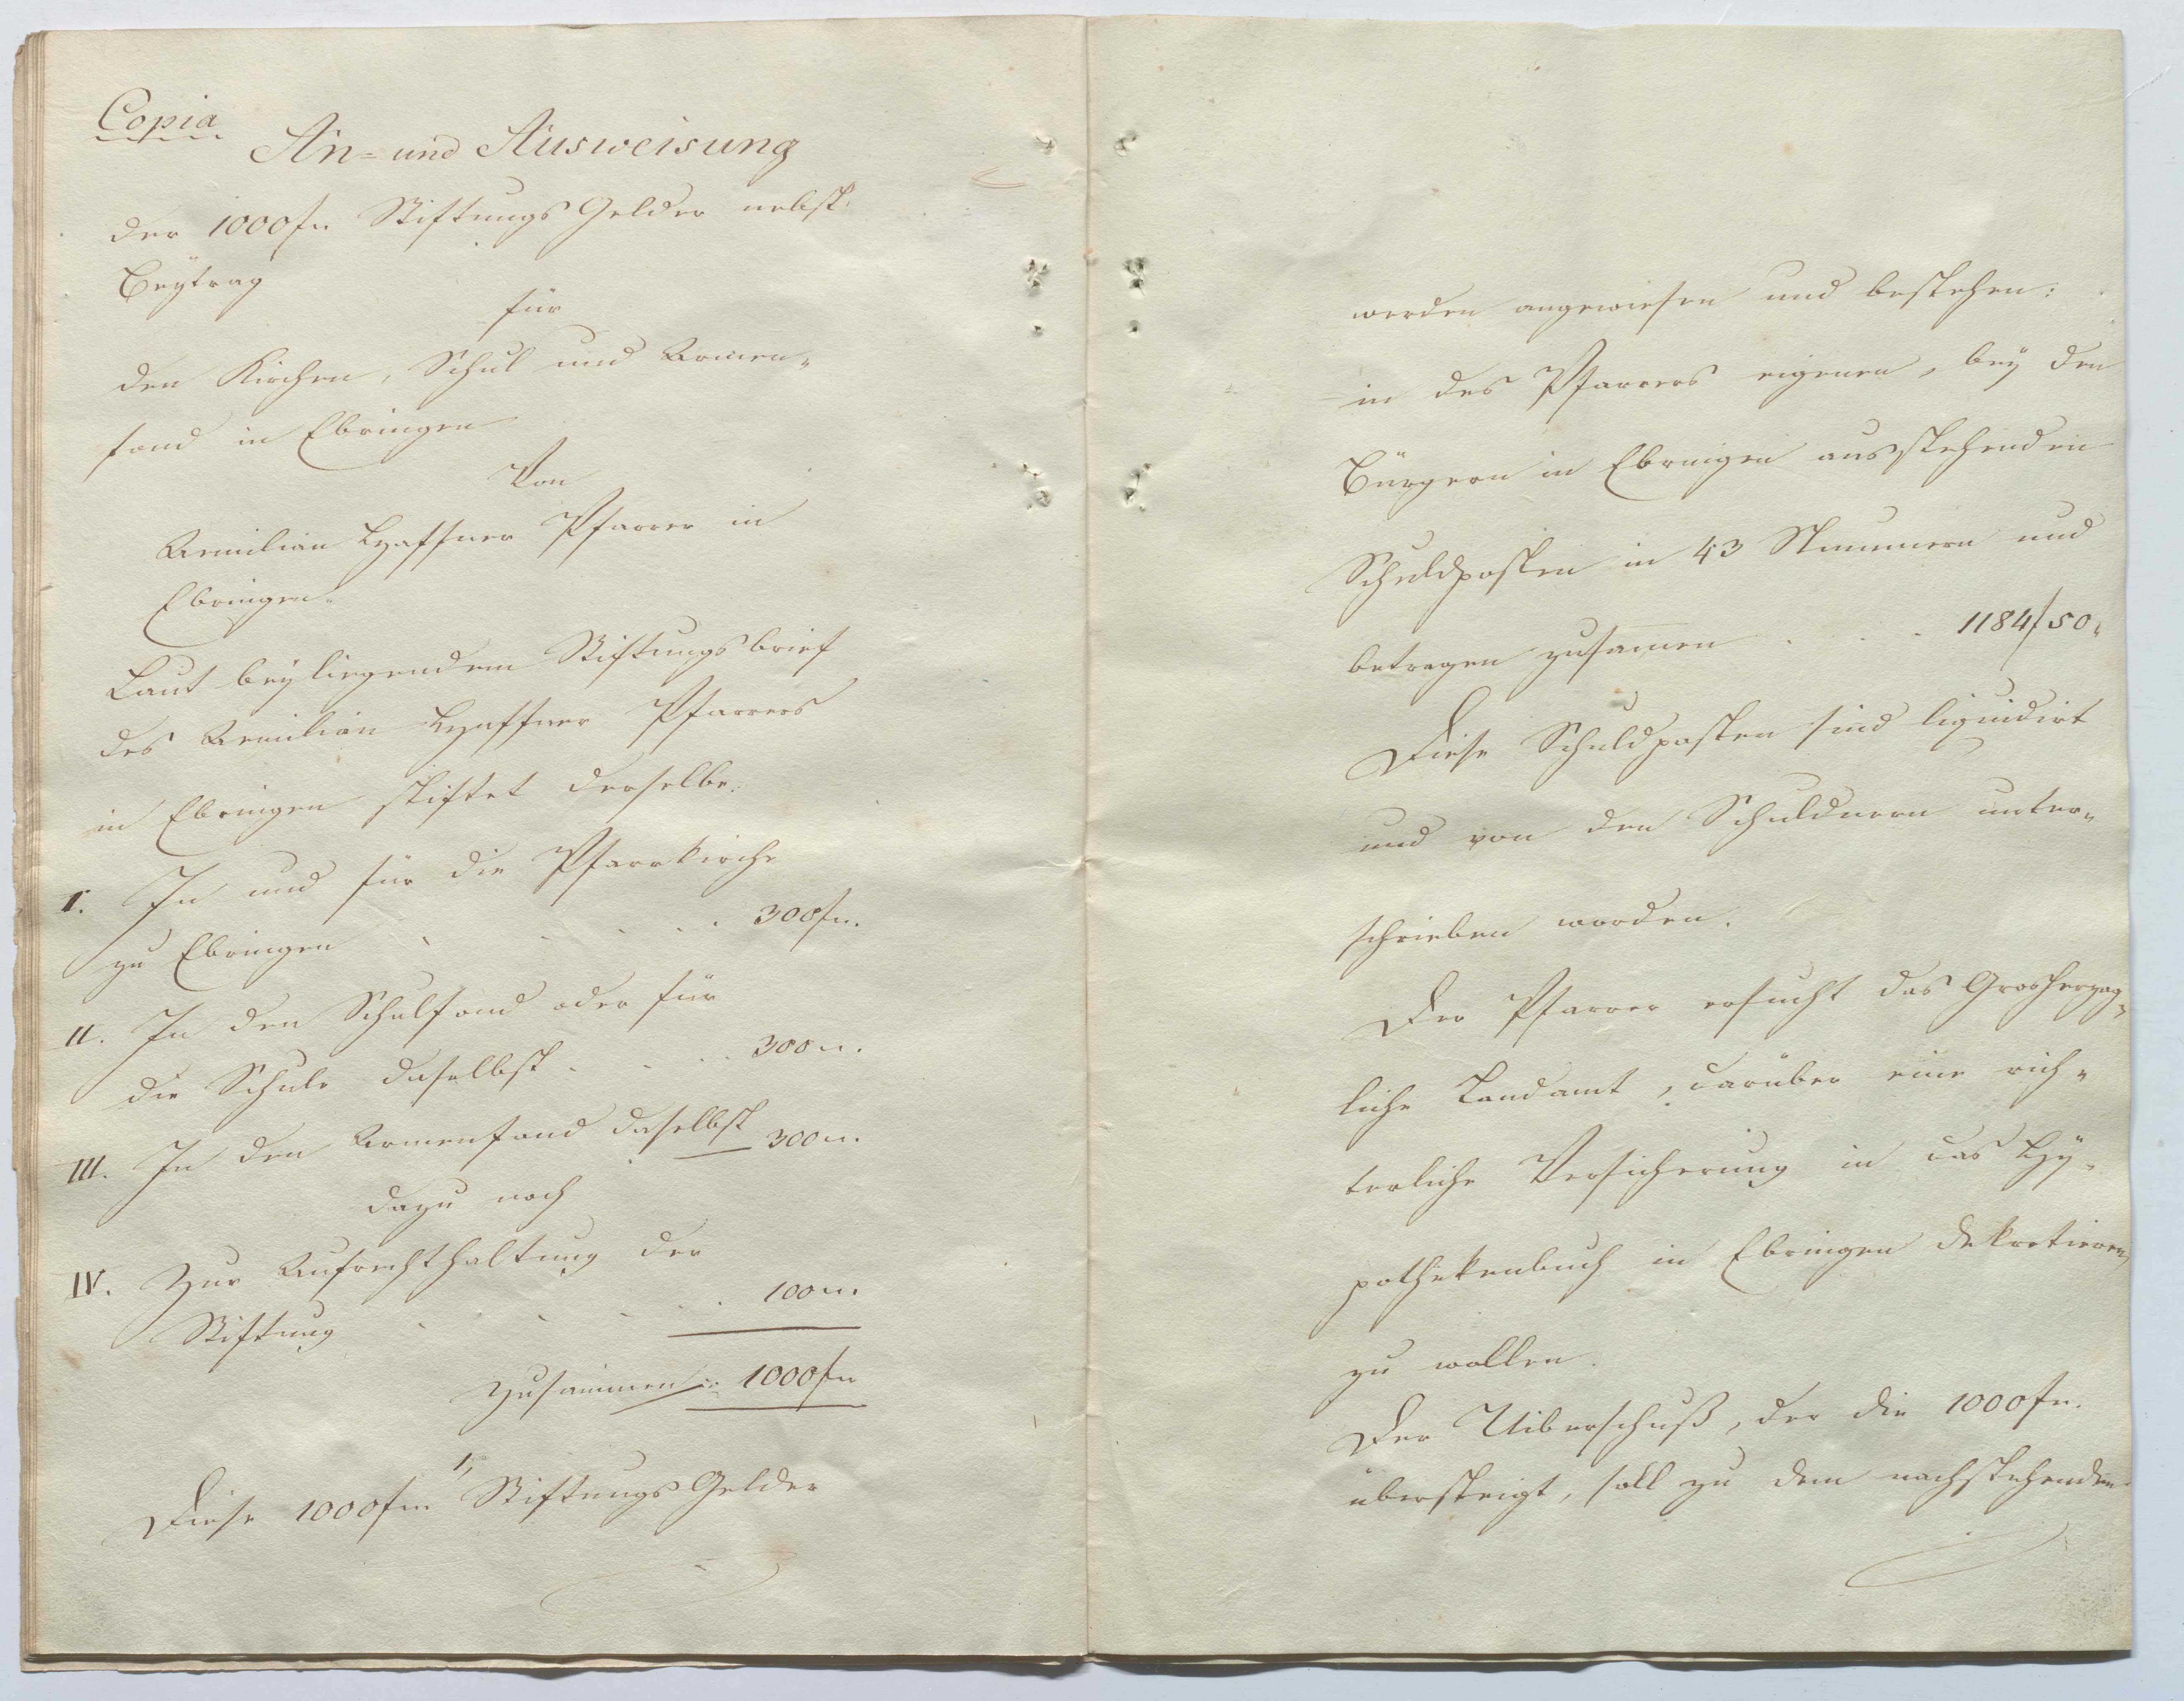 Copia
An- und Ausweisung
der 1000 fn Stiftungs Gelder nebst
Beytrag
für
den Kirchen, Schul und Armen-
fond in Ebringen
Von
Aemilian Hafner Pfarrer in
Ebringen.
Laut beyliegendem Stiftungsbrief
des Aemilian Hafner Pfarrers
in Ebringen stiftet derselbe.
I. In und für die Pfarrkirche
zu Ebringen . . . . . . 300 fn.
II. In den Schulfond oder für
die Schule daselbst . . . . 300 „.
III. In den Armenfond daselbst 300 „.
dazu noch
IV. Zur Aufrechthaltung der
Stiftung . . . . . 100 „.
Zusammen :: 1000 fn
Diese 1000 fn Stiftungs Gelder
werden angewiesen und bestehen:
in des Pfarrers eigenen, bey den
Bürgern in Ebringen ausstehenden
Schuldposten in 43 Nummern und
betragen zusamen . . . 1184 f 50.
Diese Schuldposten sind liquidirt
und von den Schuldnern unter-
schrieben worden.
Der Pfarrer ersucht das Grosherzog-
liche Landamt, darüber eine rich-
terliche Versicherung in das Hy-
pothekenbuch in Ebringen dekretiren
zu wollen.
Der Uiberschuß, der die 1000 fn.
übersteigt, soll zu dem nachstehenden